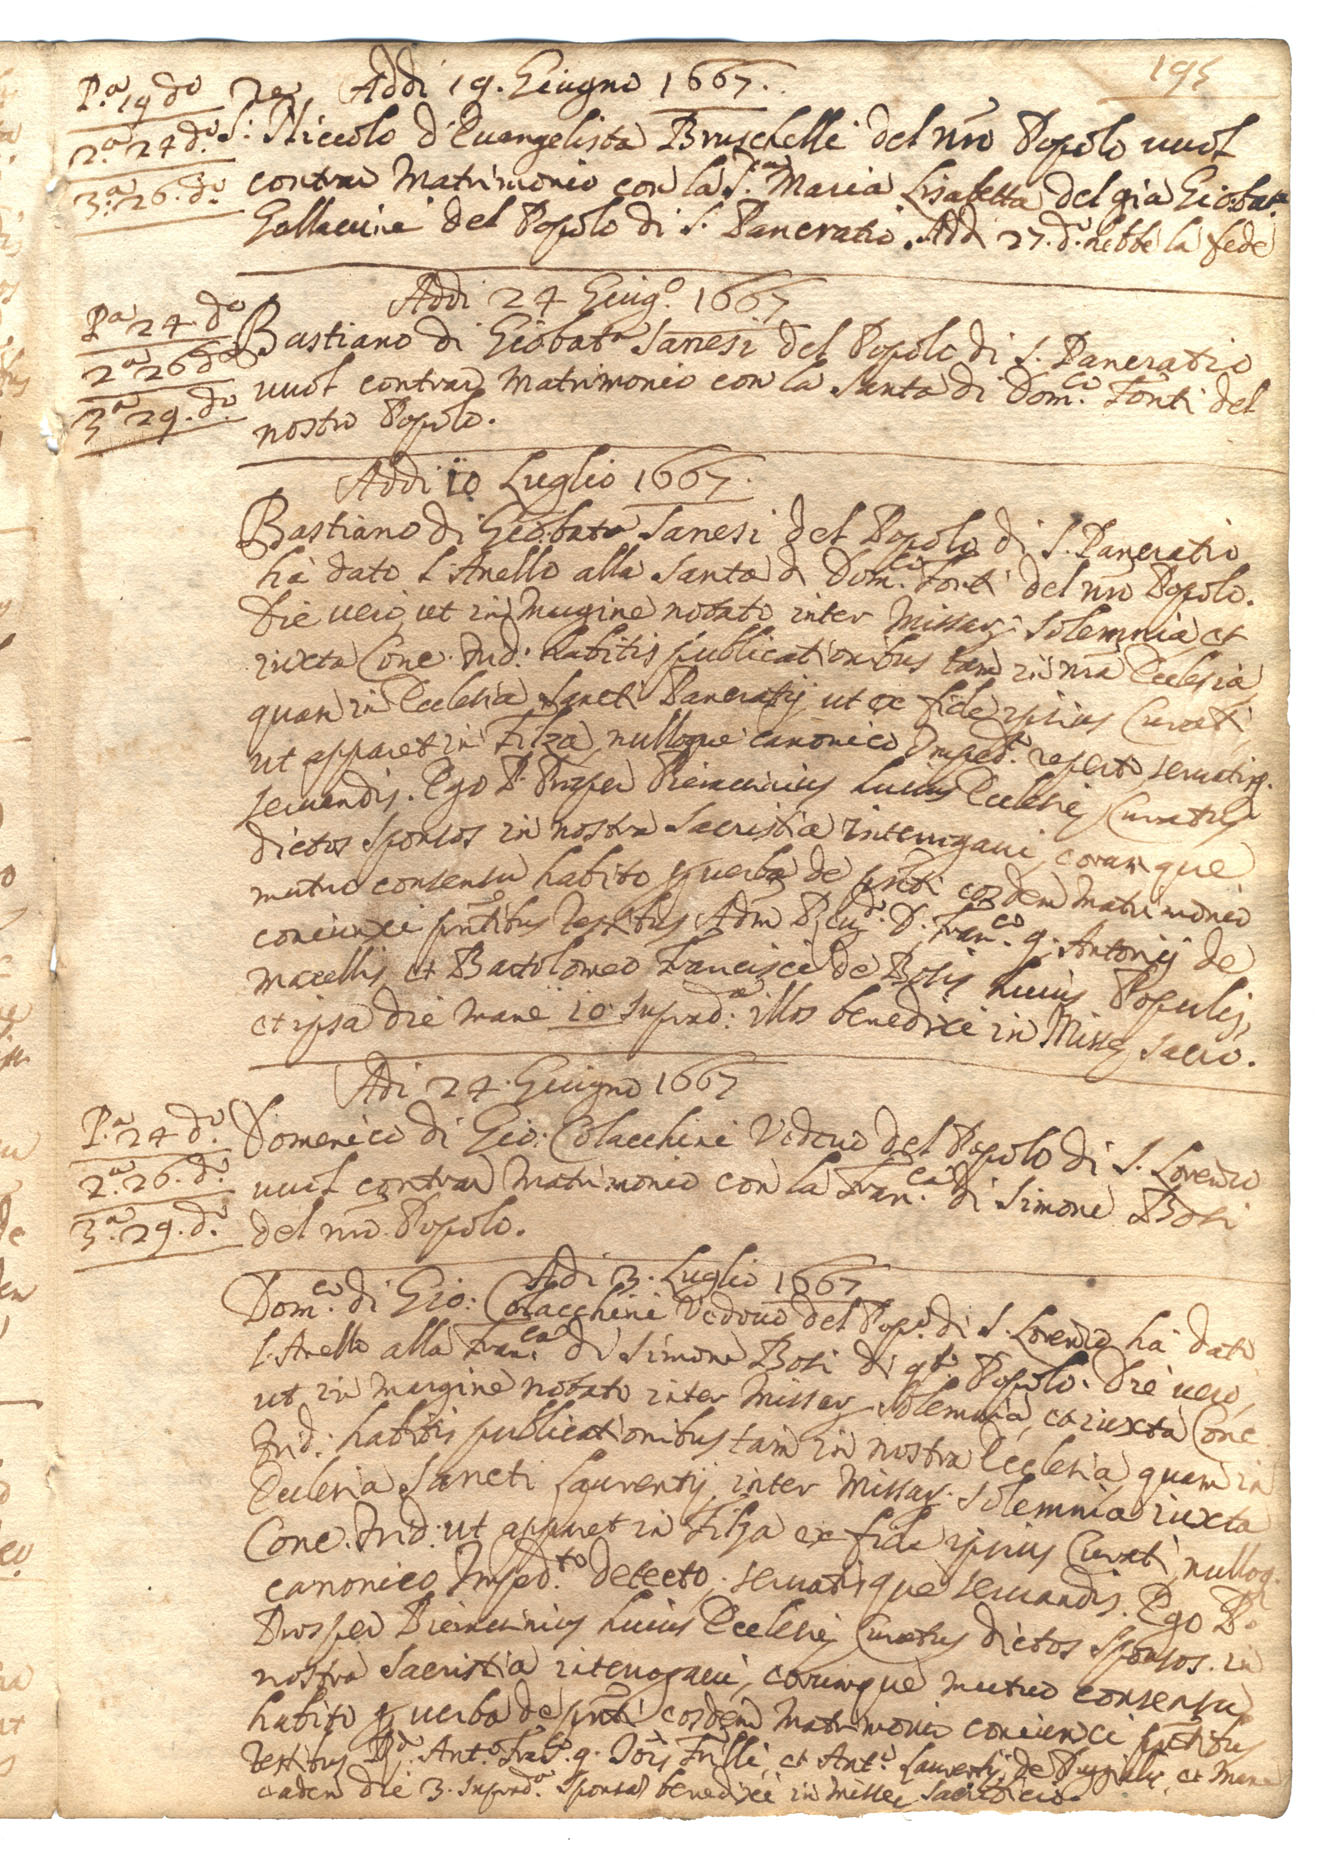 195
Addi 19. Giugno 1667.
P.a 19 do
2.a 24 do.
3.a 26. do.
S: Niccolo d'Euangelista Bruschelli del nro Popolo uuol
contrar Matrimonio con la S.a Maria Lisabetta del già Giobat.a
del Popolo di S. Pancratio. Addi 27. do. hebbe la fede
Addi 24 Giug.o 1667
P.a 24. do
2.a 26 do
3.a 29. do.
Bastiano di Giobat.a Sanesi del Popolo di S. Pancratio
uuol contrar Matrimonio con la Santa di Dom.co Fonti del
nostro Popolo.
Addi 10 Luglio 1667.
Bastiano di Giobat.a Sanesi del Popolo di S. Pancratio
hà dato l'Anello alla Santa di Dom.co Fonti del nro Popolo.
Die uero, ut in Margine notato inter Missar. Solemnia, et
iuxta Conc. Trid: habitis publicationibus tam in nra Ecclesia,
quam in Ecclesia Sancti Pancratij ut ex fide ipsius Curati,
ut apparet in Filza, nulloque canonico Imped.to reperto seruatisq.
seruandis. Ego P. Prosper huius Ecclesie Curatus
dictos Sponsos in nostra Sacristia interrogaui, eorumque
mutuo consensu habito p uerba de pnti eosdem Matrimonio
coniunxi pntibus Testibus Adm R.do D. Fran.co q. Antonij de
Macellis et Bartolomeo Francisci de Bosis huius Populi,
et ipsa die mane 10 suprad.a illos benedixi in Misse Sacro.
Adi 24. Giugno 1667
P.a 24 do.
2.a 26. do.
3.a 29. do.
Domenico di Gio: Colacchini Vedouo del Popolo di S. Lorenzo
uuol contrar Matrimonio con la Fran.ca di Simone Bosi
del nro Popolo.
Adi 3. Luglio 1667
Dom.co di Gio: Colacchini Vedouo del Pop.o di S. Lorenzo hà dato
l'Anello alla Fran.ca di Simone Bosi di q.to Popolo. Die uero,
ut in margine notato inter Missar. Solemnia, et iuxta Conc.
Trid: habitis publicationibus tam in nostra Ecclesia, quam in
Ecclesia Sancti Laurentij inter Missar. Solemnia iuxta
Conc. Trid: ut apparet in Filza ex fide ipsius Curati, nulloq.
canonico Imped.to detecto, seruatisque seruandis. Ego P.
Prosper huius Ecclesie Curatus dictos Sponsos in
nostra Sacristia interrogaui, eorumque mutuo consensu
habito p uerba de pnti eosdem Matrimonio coniunxi pntibus
Testibus R.do Ant.o q. Jois et Ant.o Laurentij de et Mane
eadem die 3. suprad.a Sponsos benedixi in Misse Sacrificio.